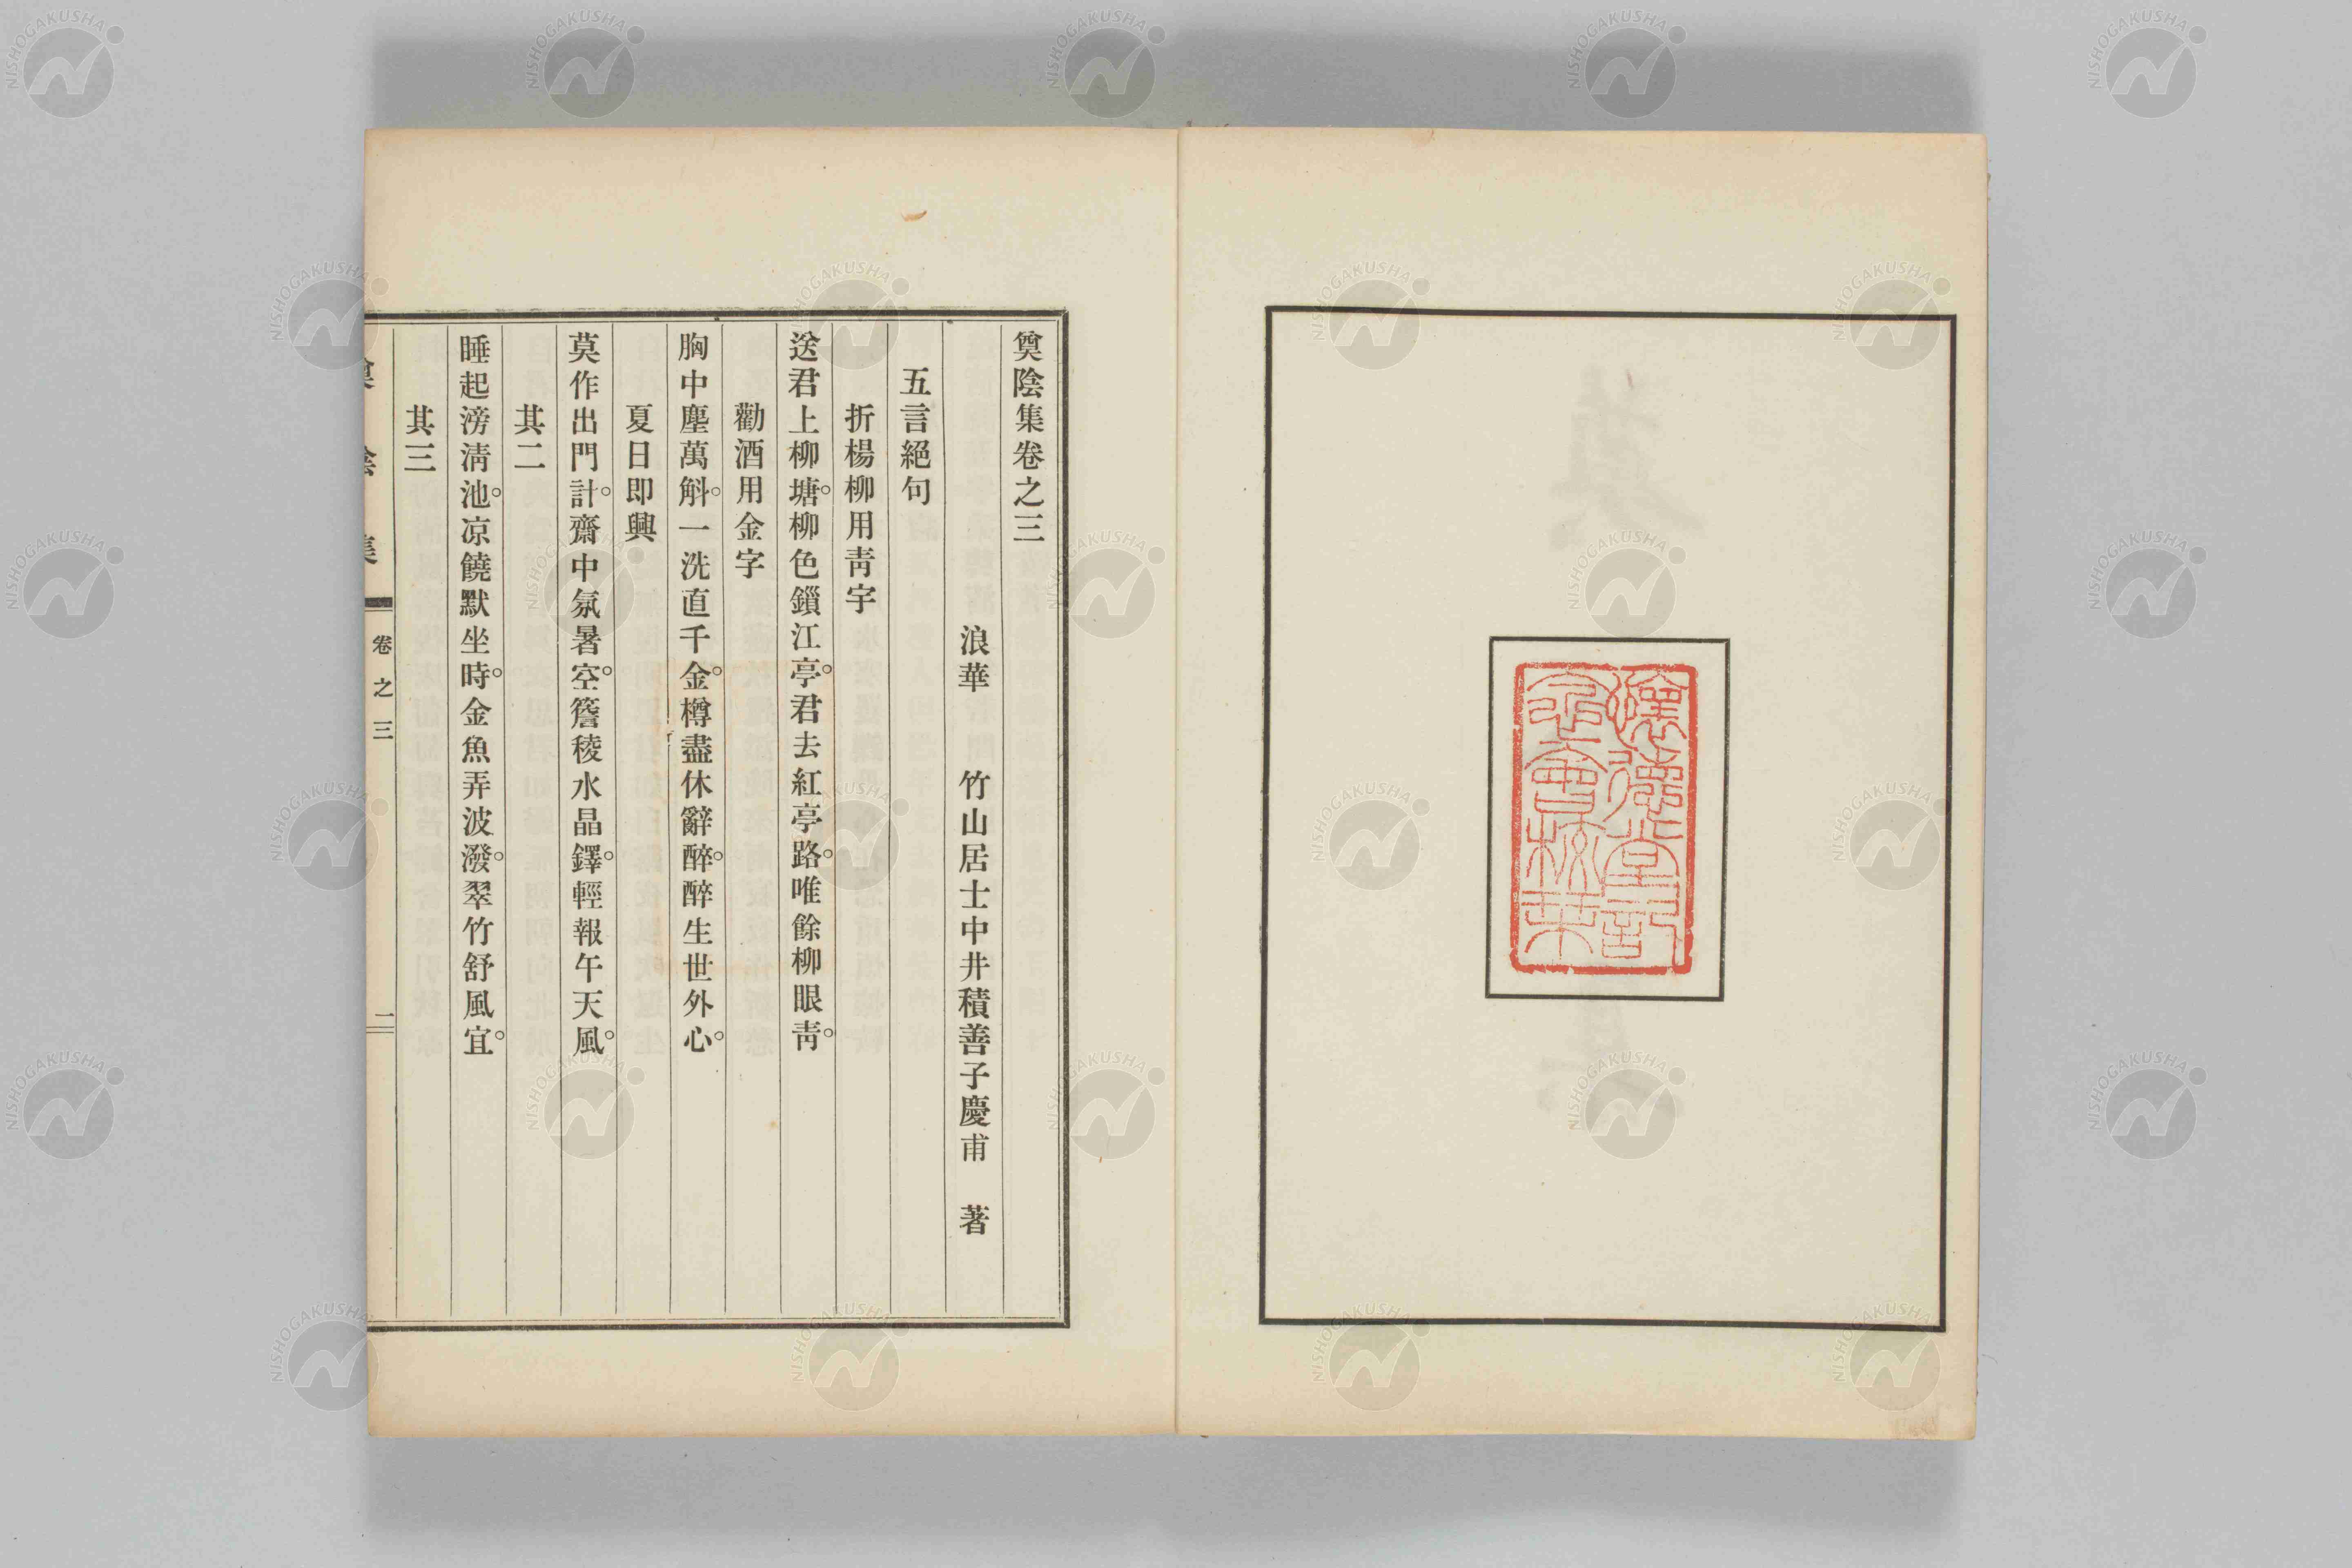 懷德堂記
念會校栞
奠陰集卷之三
浪華 竹山居士中井積善子慶甫 著
五言絕句
折楊柳用靑宇
送君上柳塘。柳色鎻江亭。君去紅亭路。唯餘柳眼靑。
勸酒用金字
胸中塵萬斛。一洗直千金。樽盡休辭醉。醉生世外心。
夏日即興
莫作出門計。齋中氛暑空。簷稜水晶鐸。輕報午天風。
其二
睡起滂淸池。凉饒默坐時。金魚弄波潑。翠竹舒風宜。
其三
奠陰集 卷之三 一
NISHOGAKUSHA